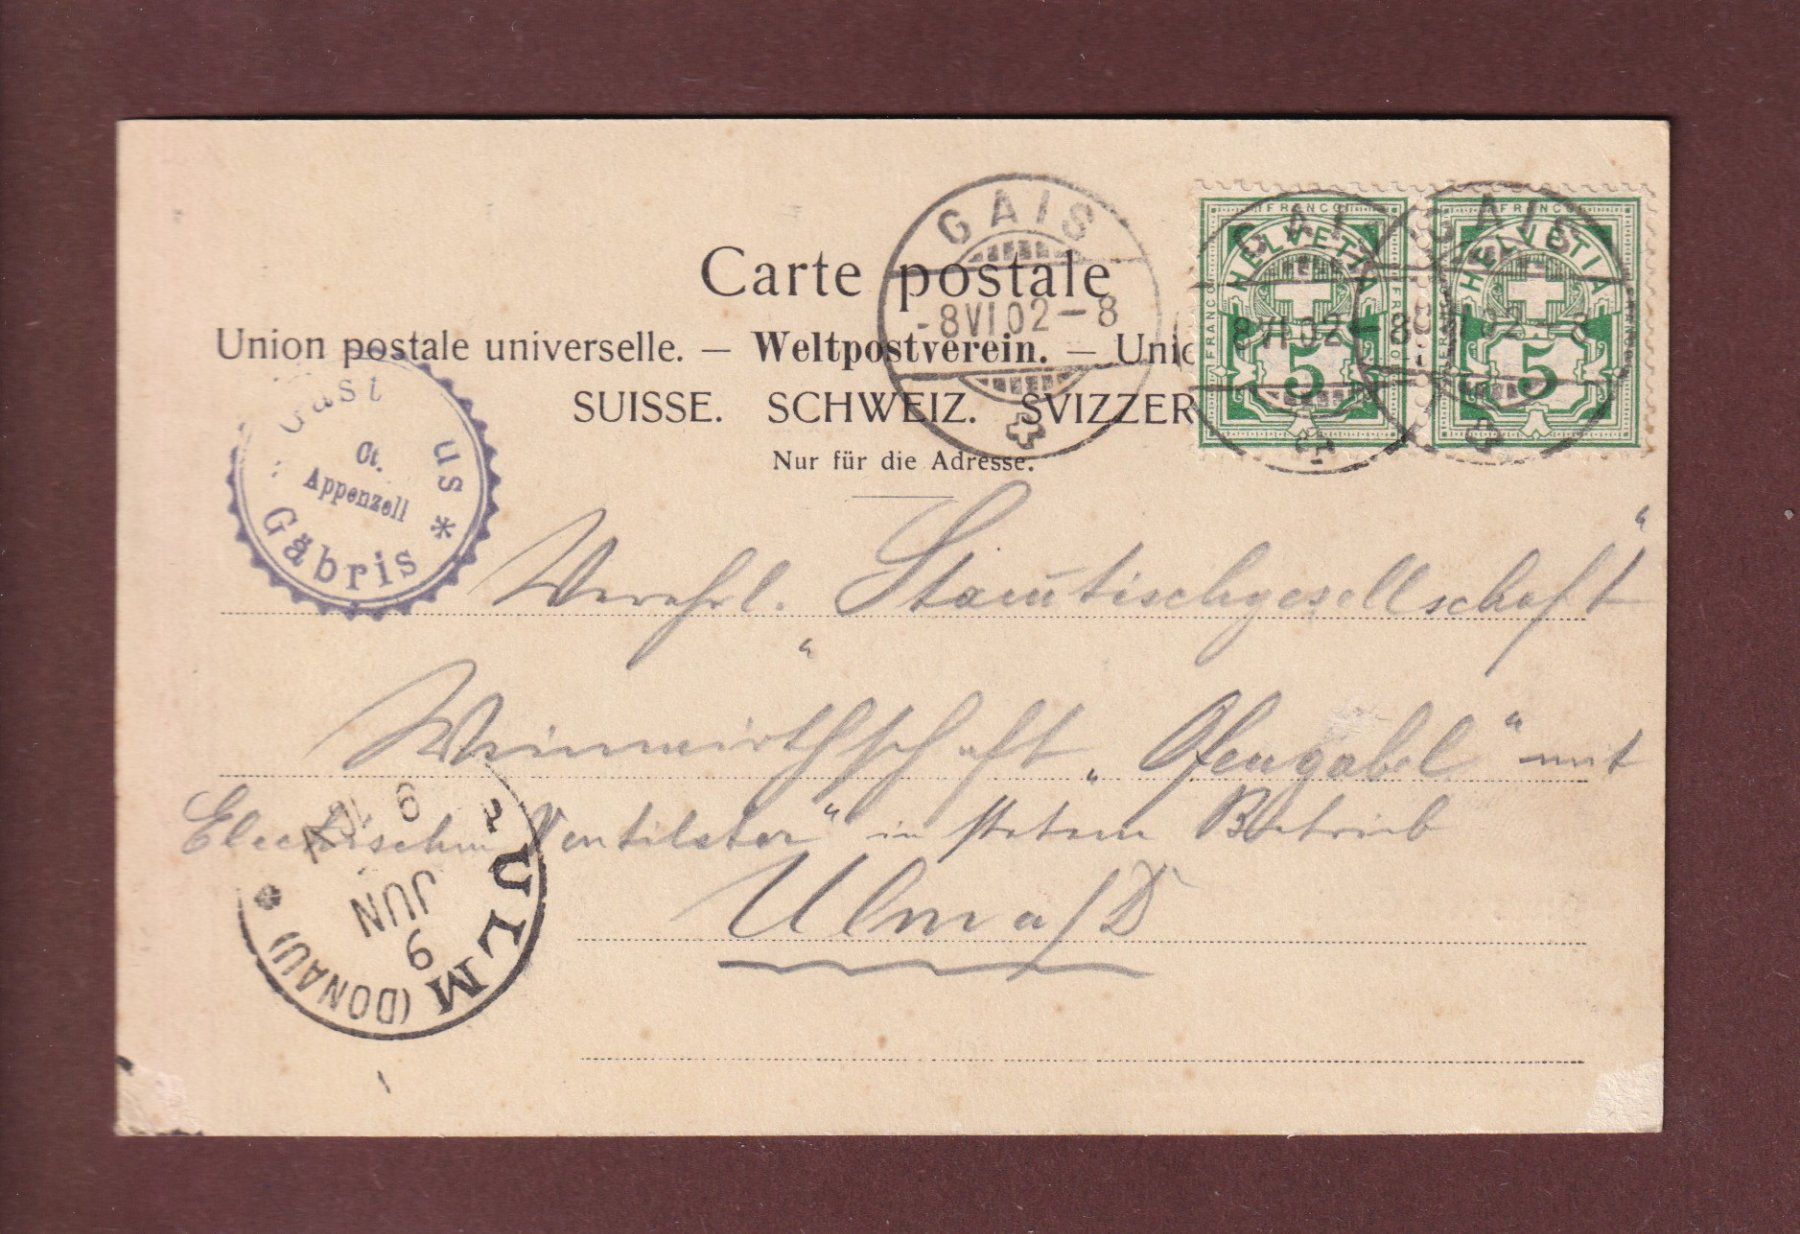 Carte postale
Union postale universelle. — Weltpostverein. — Unio
SUISSE. SCHWEIZ. SVIZZER
Nur für die Adresse.
GAIS
-8VI.02-8
FRANCO
HELVETIA
FRANCO
5
FRANCO
HELVETIA
5
GAIS
8VI.02-8
GAIS
VI.02-8
Gast us
Ct.
Appenzell
Gäbris *
Verehrl. Stamtischgesellschaft "
" Weinwirthschaft „Ofengabel" mit
Electrischem Ventilator" in stetem Betrieb
Ulm a/D
ULM (DONAU) *
9
JUN